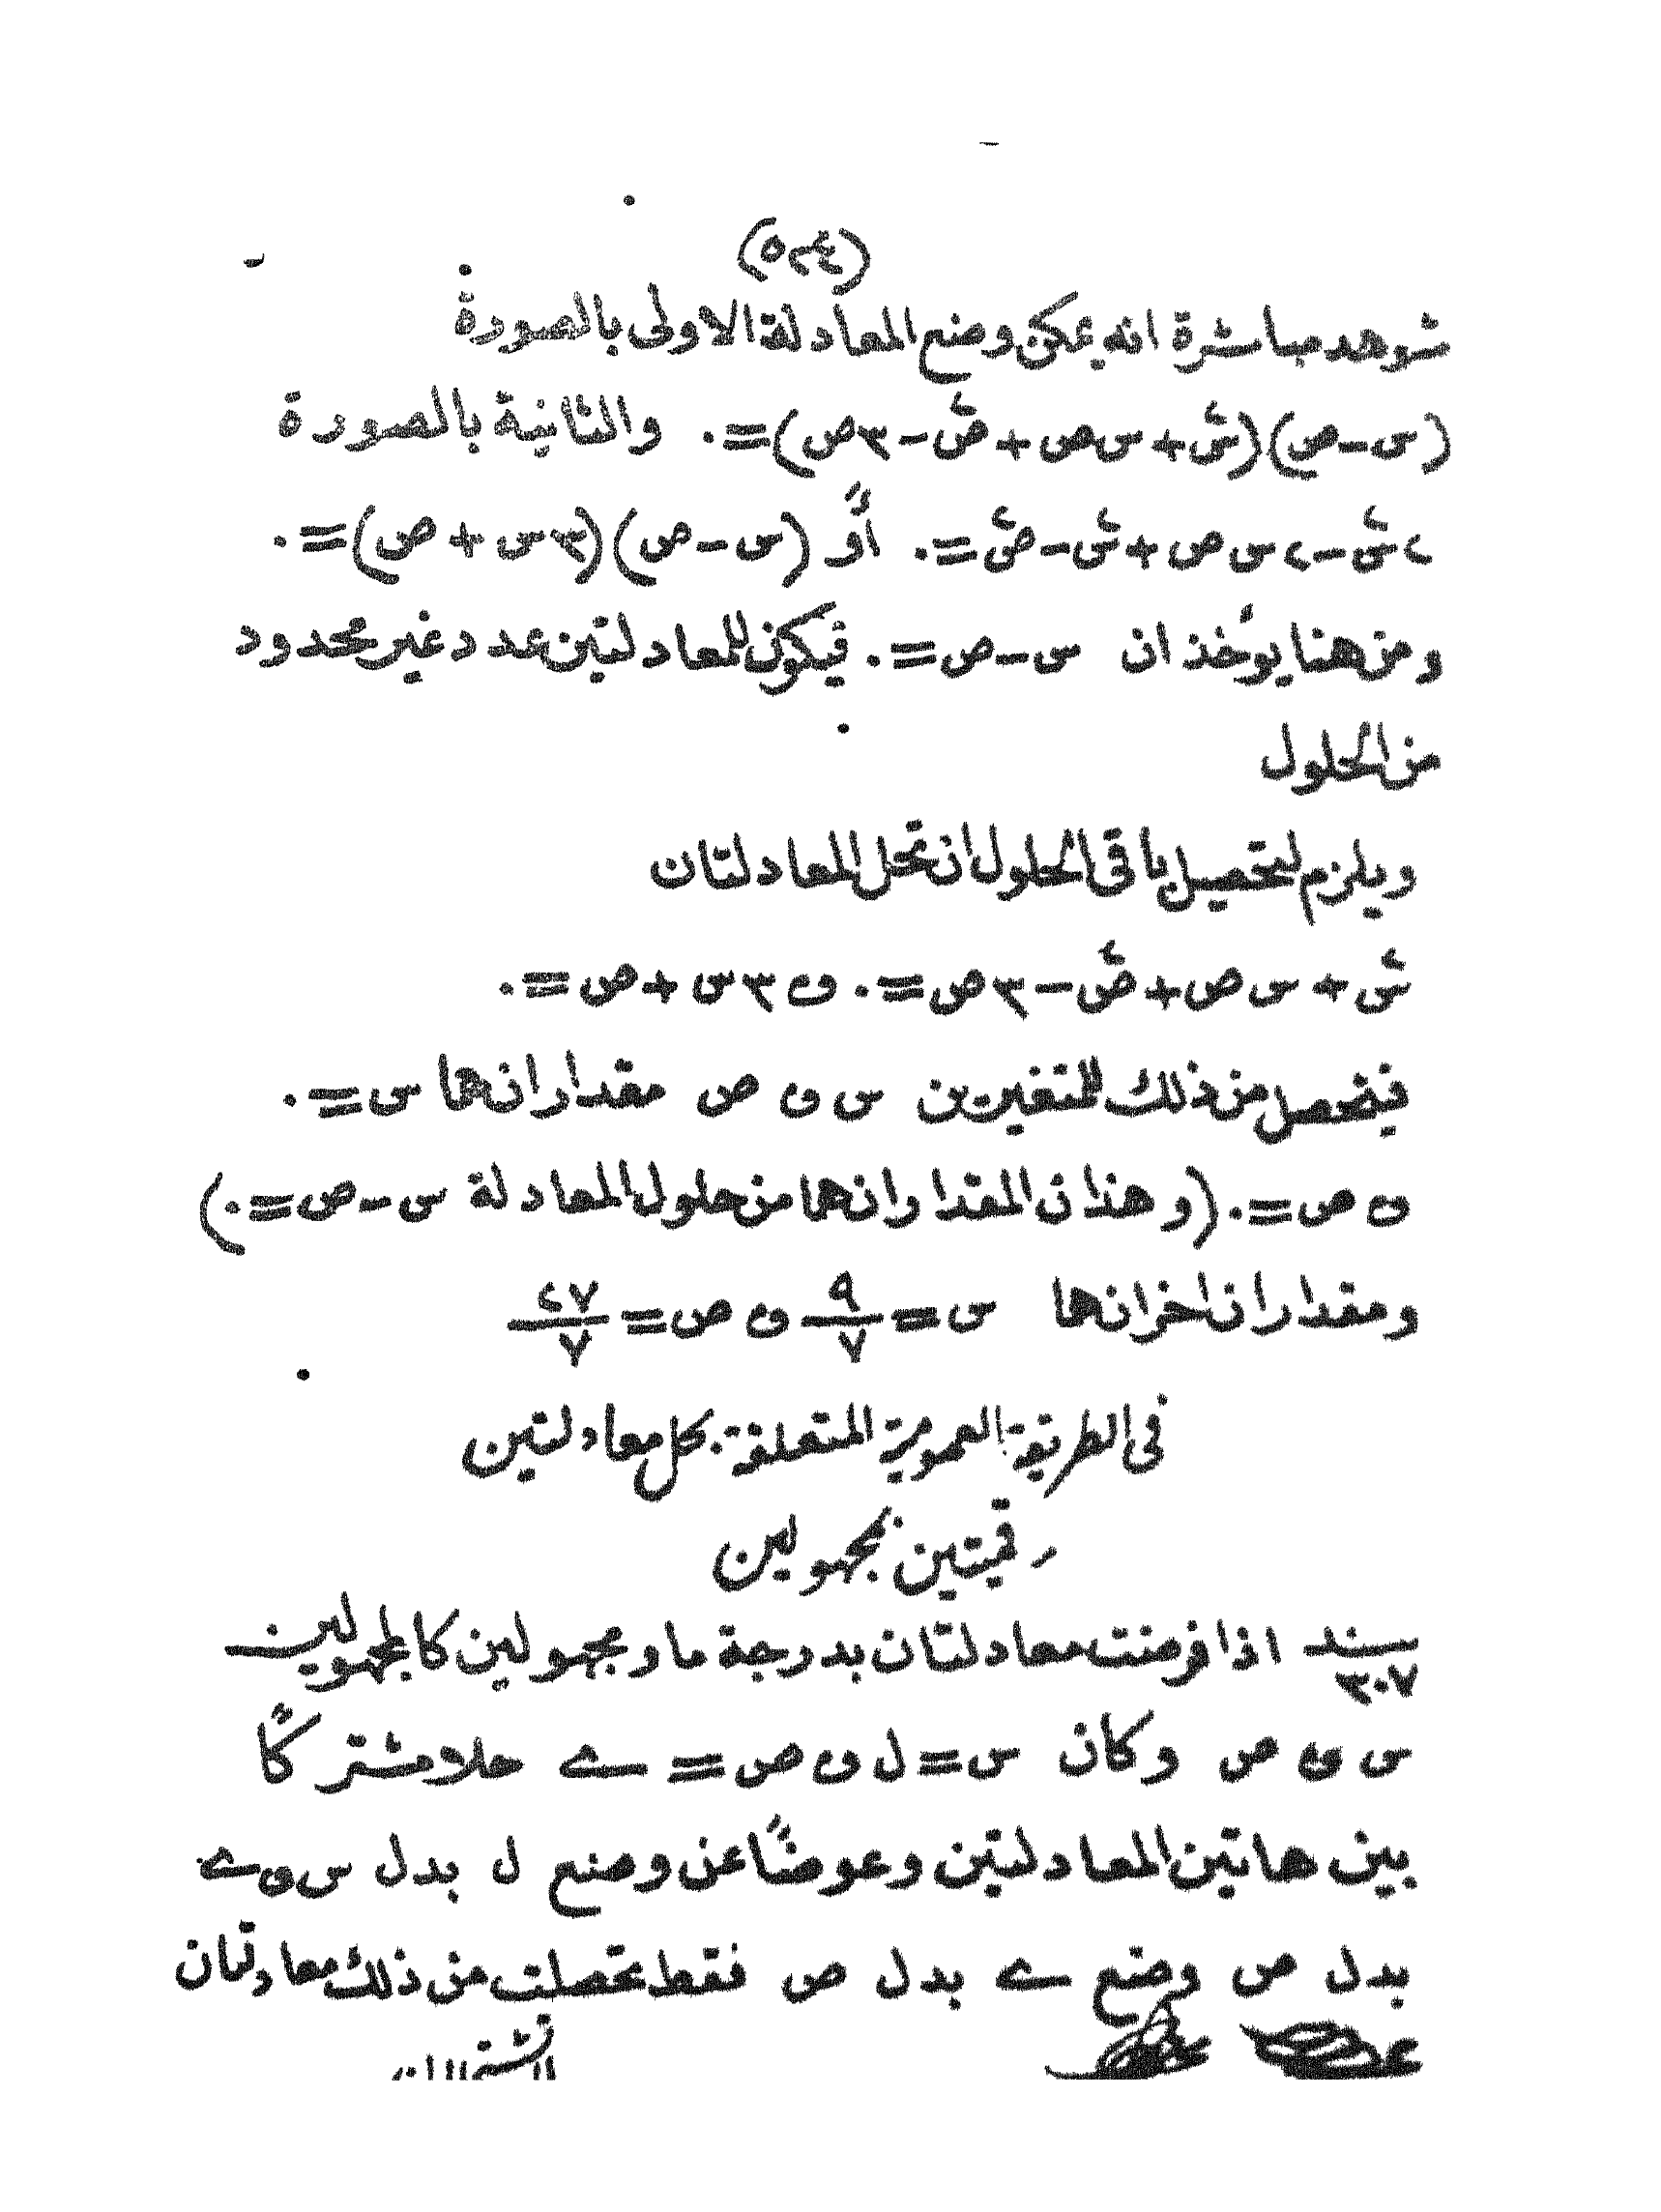 (٥٣٤)
شوهد مباشرة انه يمكن وضع المعادلة الاولى بالصورة
(س-ص)(س٢+س ص+ص٢-٣ص)=٠ والثانية بالصورة
٢س٢-٢س ص+س٢-ص٢=٠ أو (س-ص)(٣س+ص)=٠
ومن هنا يؤخذ ان س-ص=٠ فيكون للمعادلتين عدد غير محدود
من الحلول
ويلزم لتحصيل باقى الحلول ان تحل المعادلتان
س٢+س ص+ص٢-٣ص=٠ و ٣س+ص=٠
فيتحصل من ذلك للمتغيرين س و ص مقداران هما س=٠
و ص=٠ (وهذان المقداران هما من حلول المعادلة س-ص=٠)
ومقداران اخران هما س=٩/٧ و ص=٢٧/٧
فى الطريقة العمومية المتعلقة بحل معادلتين
رقميتين بمجهولين
سند ٣٠٧ اذا فرضت معادلتان بدرجة ما ومجهولين كالمجهولين
س و ص وكان س=ل و ص=ے حلا مشتركًا
بين هاتين المعادلتين وعوضًا عن وضع ل بدل س و ے
بدل ص وضع ے بدل ص فقط تحصلت من ذلك معادلتان